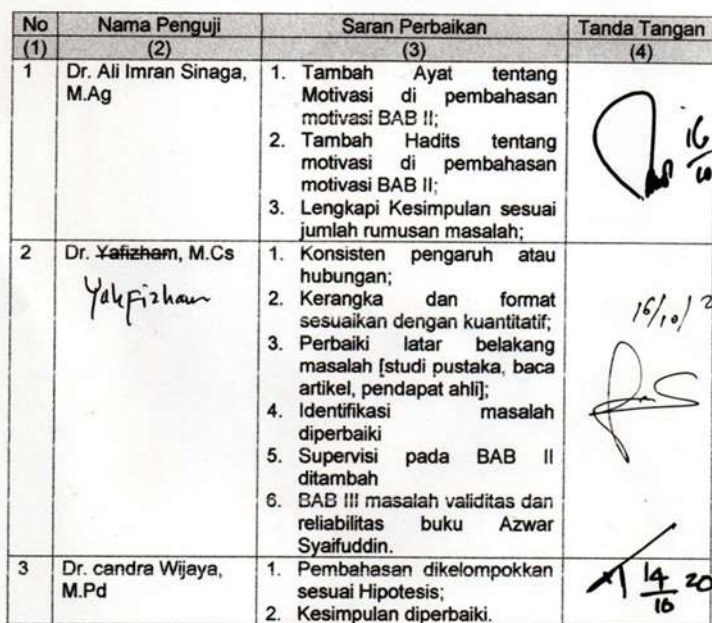 No Nama Penguji Saran Perbaikan Tanda Tangan
(1) (2) (3) (4)
1 Dr. Ali Imran Sinaga, M.Ag
1. Tambah Ayat tentang
Motivasi di pembahasan
motivasi BAB II;
2. Tambah Hadits tentang
motivasi di pembahasan
motivasi BAB II;
3. Lengkapi Kesimpulan sesuai
jumlah rumusan masalah;
16
2 Dr. Yafizham, M.Cs
Yakfizham
1. Konsisten pengaruh atau
hubungan;
2. Kerangka dan format
sesuaikan dengan kuantitatif;
3. Perbaiki latar belakang
masalah [studi pustaka, baca
artikel, pendapat ahli];
4. Identifikasi masalah
diperbaiki
5. Supervisi pada BAB II
ditambah
6. BAB III masalah validitas dan
reliabilitas buku Azwar
Syaifuddin.
16/10/2
3 Dr. candra Wijaya,
M.Pd
1. Pembahasan dikelompokkan
sesuai Hipotesis;
2. Kesimpulan diperbaiki.
14 20
10